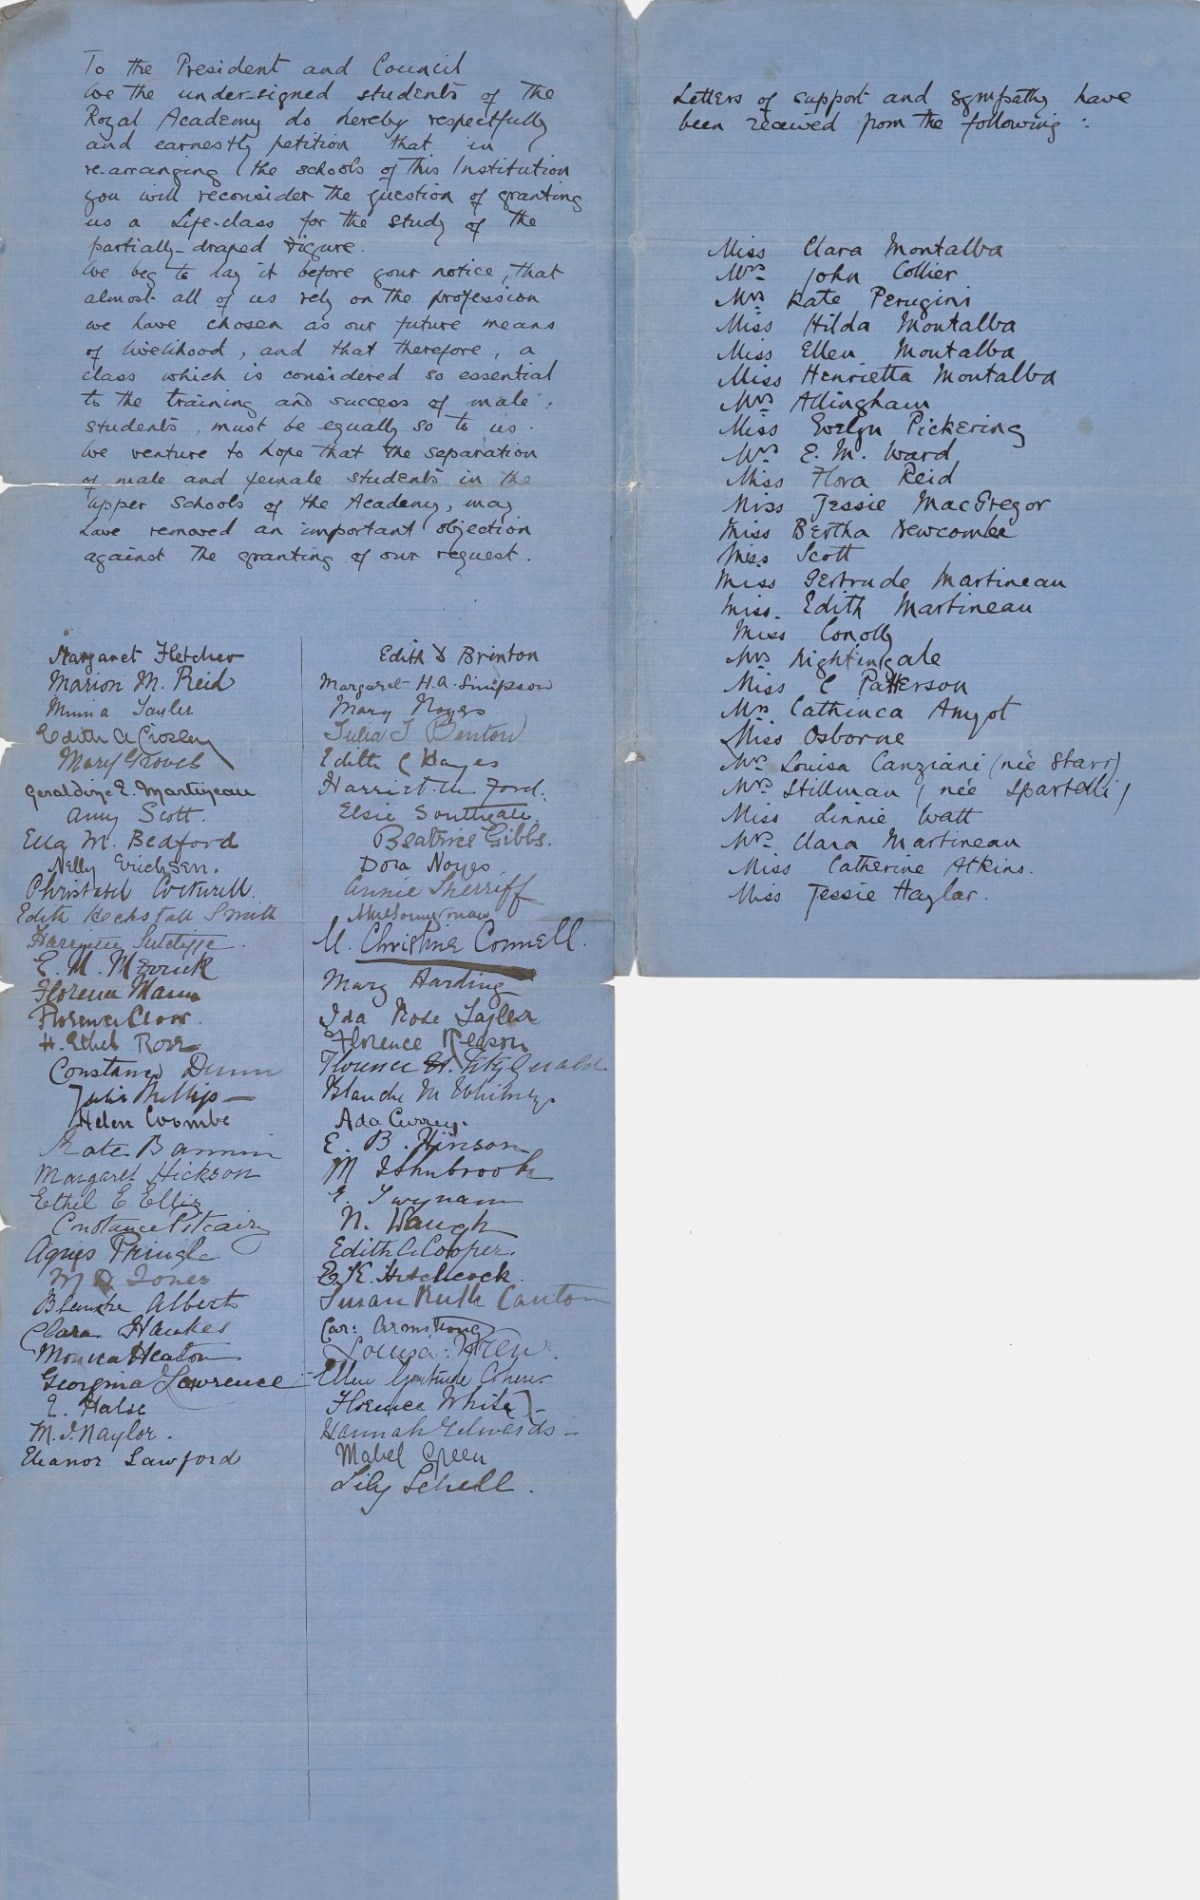 To the President and Council
We the under-signed students of the
Royal Academy do hereby respectfully
and earnestly petition that in
re-arranging the schools of this Institution
you will reconsider the question of granting
us a Life-class for the study of the
partially-draped figure.
We beg to lay it before your notice, that
almost all of us rely on the profession
we have chosen as our future means
of livelihood, and that therefore, a
class which is considered so essential
to the training and success of male
students, must be equally so to us.
We venture to hope that the separation
of male and female students in the
upper schools of the Academy, may
have removed an important objection
against the granting of our request.
Margaret Fletcher
Marion M. Reid
Minna Tayler
Edith A Crosley
Mary Groves
Geraldine E. Martineau
Amy Scott.
Ella M. Bedford
Nelly Erichsen.
Christabel Cockerell.
Edith Heckstall Smith
Harriette Sutcliffe.
E. M. Merrick
Florence Mann
Florence Clow.
H. Ethel Rose
Constance Dunn
Julia Phillips
Helen Coombe
Kate
Margaret Hickson
Ethel E Ellis
Constance Pitcairn
Agnes Pringle
M Jones
Blanche Alberts
Clara Hawkes
Monica Heaton
Georgina Lawrence
E. Halse
M. I. Naylor.
Eleanor Lawford
Edith D Brinton
Margaret H. A. Simpson
Mary Noyes
Julia T Benton
Edith C Hayes
Harriet M. Ford.
Elsie Southgate.
Beatrice Gibbs.
Dora Noyes
Annie Sherriff
M. Christine Connell.
Mary Harding
Ida Rose Tayler
Florence Reason
Florence FitzGerald
Blanche M Whitney
Ada Currey.
E. B. Hinson
M
E. Twynam
N. Waugh
Edith A Cooper.
E. K. Hitchcock.
Susan Ruth Canton
Car: Armstrong
Louisa: Wren.
Ellen Gertrude Cohen
Florence White
Hannah Edwards
Mabel Green
Lily Schell.
Letters of support and sympathy have
been received from the following:
Miss Clara Montalba
Mrs John Collier
Mrs Kate Perugini
Miss Hilda Montalba
Miss Ellen Montalba
Miss Henrietta Montalba
Mrs Allingham
Miss Evelyn Pickering
Mrs E. M. Ward
Miss Flora Reid
Miss Jessie MacGregor
Miss Bertha Newcombe
Miss Scott
Miss Gertrude Martineau
Miss. Edith Martineau
Miss Conolly
Mrs Nightingale
Miss C Patterson
Mrs Cathinca Amyot
Miss Osborne
Mrs Louisa Canziani (née Starr)
Mrs Stillman (née Spartelli)
Miss Linnie Watt
Mrs Clara Martineau
Miss Catherine Atkins.
Miss Jessie Haylar.